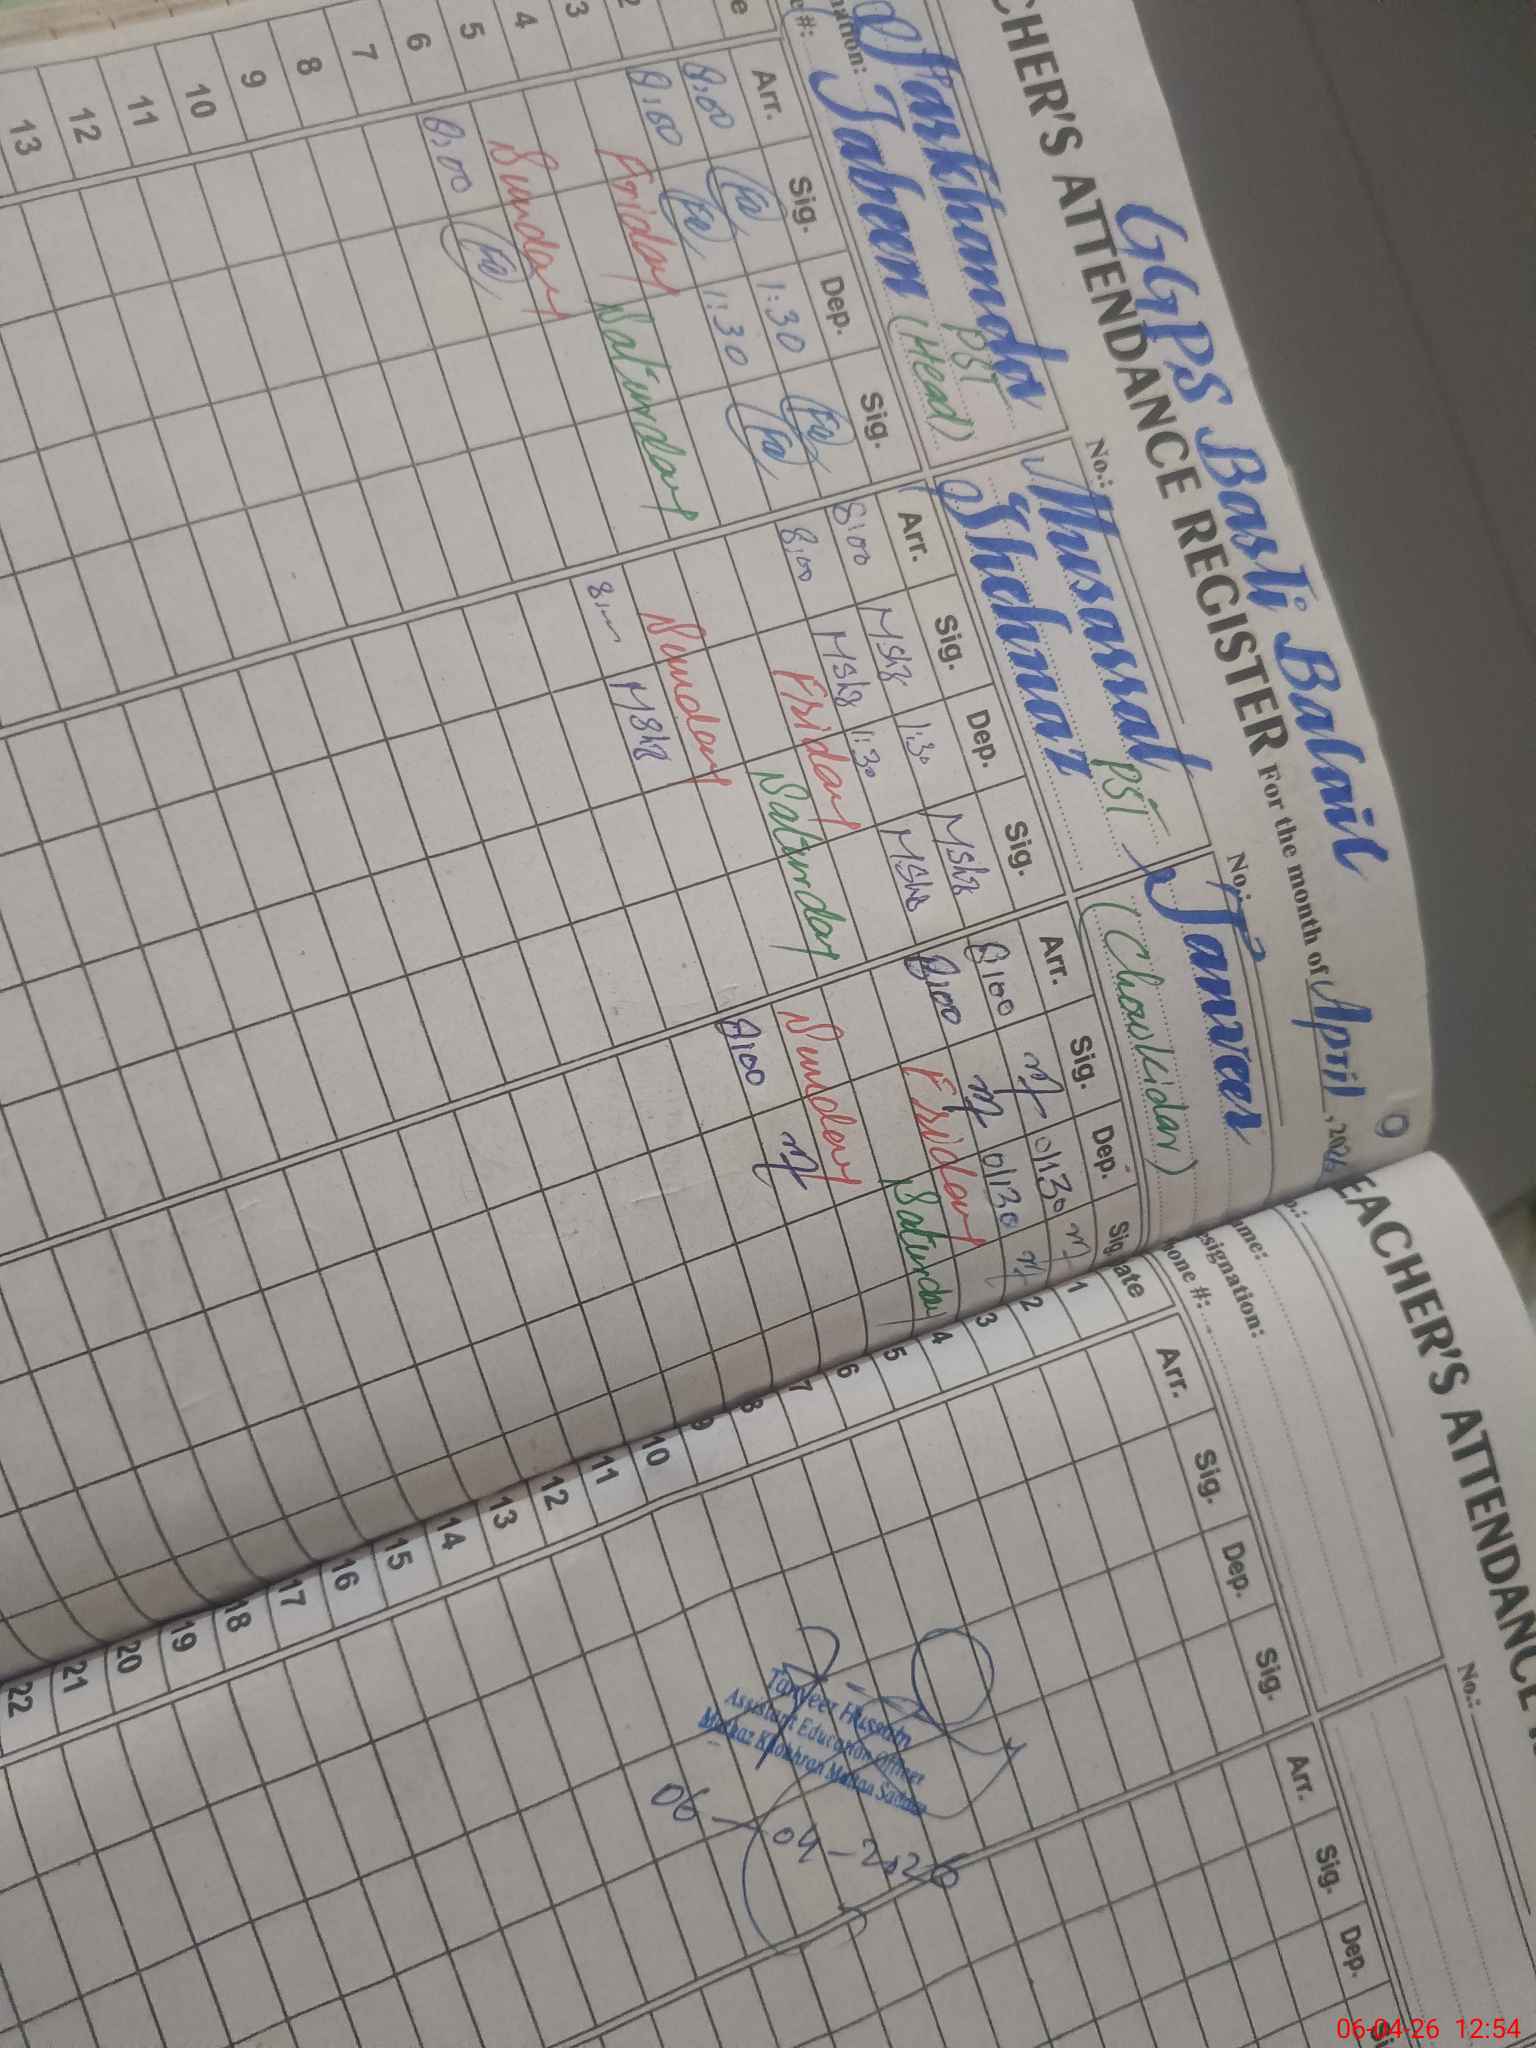 GGPS Basti Balail
CHER'S ATTENDANCE REGISTER For the month of April, 2026
No.: No.:
Farkhanda PST Musarrat PST Tanveer
Jabeen (Head) Shehnaz (Chowkidar)
Arr. Sig. Dep. Sig. Arr. Sig. Dep. Sig. Arr. Sig. Dep. Sig.
8:00 Fa 1:30 Fa 8:00 MShz 1:30 MShz 8:00 01:30
2 8:00 Fa 1:30 Fa 8:00 MShz 1:30 MShz 8:00 01:30
3 Friday Friday Friday
4 Saturday Saturday Saturday
5 Sunday Sunday Sunday
6 8:00 Fa MShz 8:00
7
8
9
10
11
12
13
EACHER'S ATTENDANCE
No.:
ame:
signation:
hone #:
ate Arr. Sig. Dep. Sig. Arr. Sig. Dep.
1
2
3
4
5
6
7
8
9
10
11
12
13
14
15
16
17
18
19
20
21
22
Tanveer Hussain
Assistant Education Officer
Markaz Khokhran Multan Saddar
06-04-2026
06-04-26 12:54